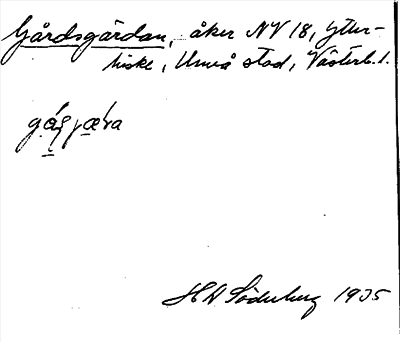 Gårdsgärdan, åker NV 18, Ytter-
hiske, Umeå stad, Västerb. l.
H W Söderberg 1935